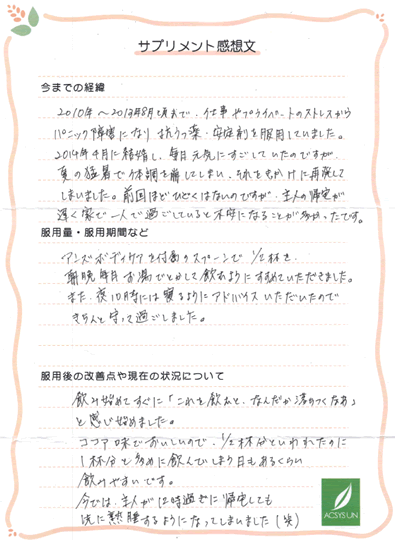 サプリメント感想文
今までの経緯
2010年〜2013年8月頃まで、仕事やプライベートのストレスから
パニック障害になり 抗うつ薬・安定剤を服用していました。
2014年4月に結婚し、毎日元気にすごしていたのですが、
夏の猛暑で体調を崩してしまい、それをきっかけに再発して
しまいました。前回ほどひどくはないのですが、主人の帰宅が
遅く家で一人で過ごしていると不安になることが多かったです。
服用量・服用期間など
アンズボディケアを付属のスプーンで 1/2杯を、
朝晩毎日お湯でとかして飲むようにすすめていただきました。
また、夜10時には寝るようにアドバイスいただいたので
きちんと守って過ごしました。
服用後の改善点や現在の状況について
飲み始めてすぐに「これを飲むと、なんだか落ちつくなあ」
と感じ始めました。
ココア味でおいしいので、1/2杯分といわれたのに
1杯分と多めに飲んでしまう日もあるくらい
飲みやすいです。
今では、主人が12時過ぎに帰宅しても
先に熟睡するようになってしまいました(笑)
ACSYS UN